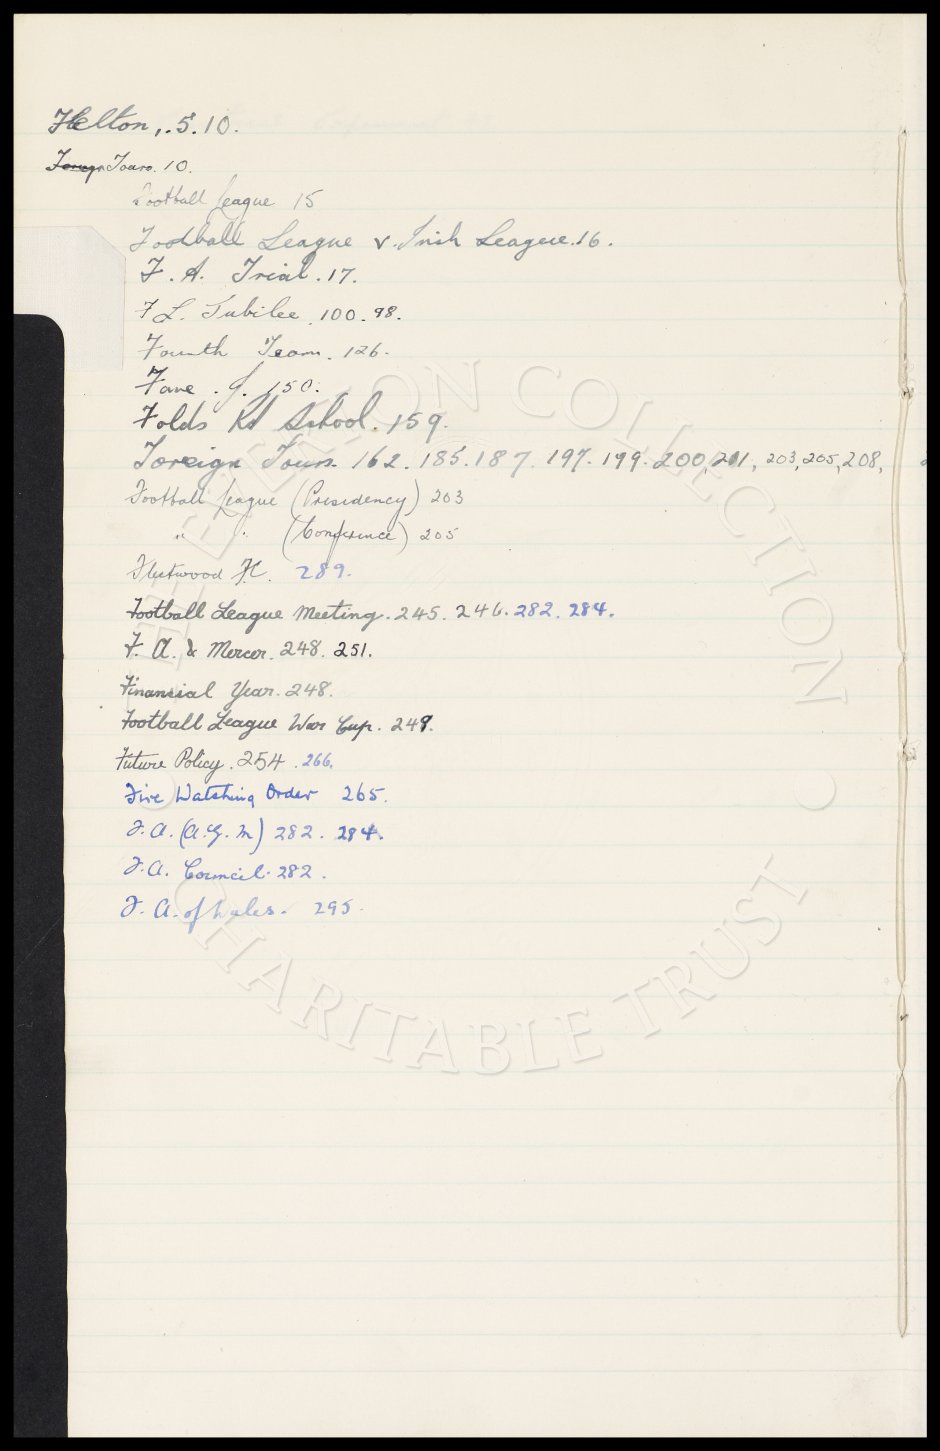 Felton, . 5. 10.
Foreign Tours. 10.
Football League 15
Football League v. Irish League. 16.
F. A. Trial. 17.
F L. Jubilee. 100. 98.
Fourth Team. 126.
Fane. J. 150.
Folds Rd School. 159.
Foreign Tours. 162. 185. 187. 197. 199. 200, 201, 203, 205, 208,
Football League (Presidency) 203
" " (Conference) 205
Fleetwood FC. 289.
Football League Meeting. 245. 246. 282. 284.
F. A. & Mercer. 248. 251.
Financial Year. 248.
Football League War Cup. 249.
Future Policy. 254. 266.
Fire Watching Order 265.
F. A. (A. G. M) 282. 284.
F. A. Council. 282.
F. A. of Wales. 295.
COLLECTION
CHARITABLE TRUST